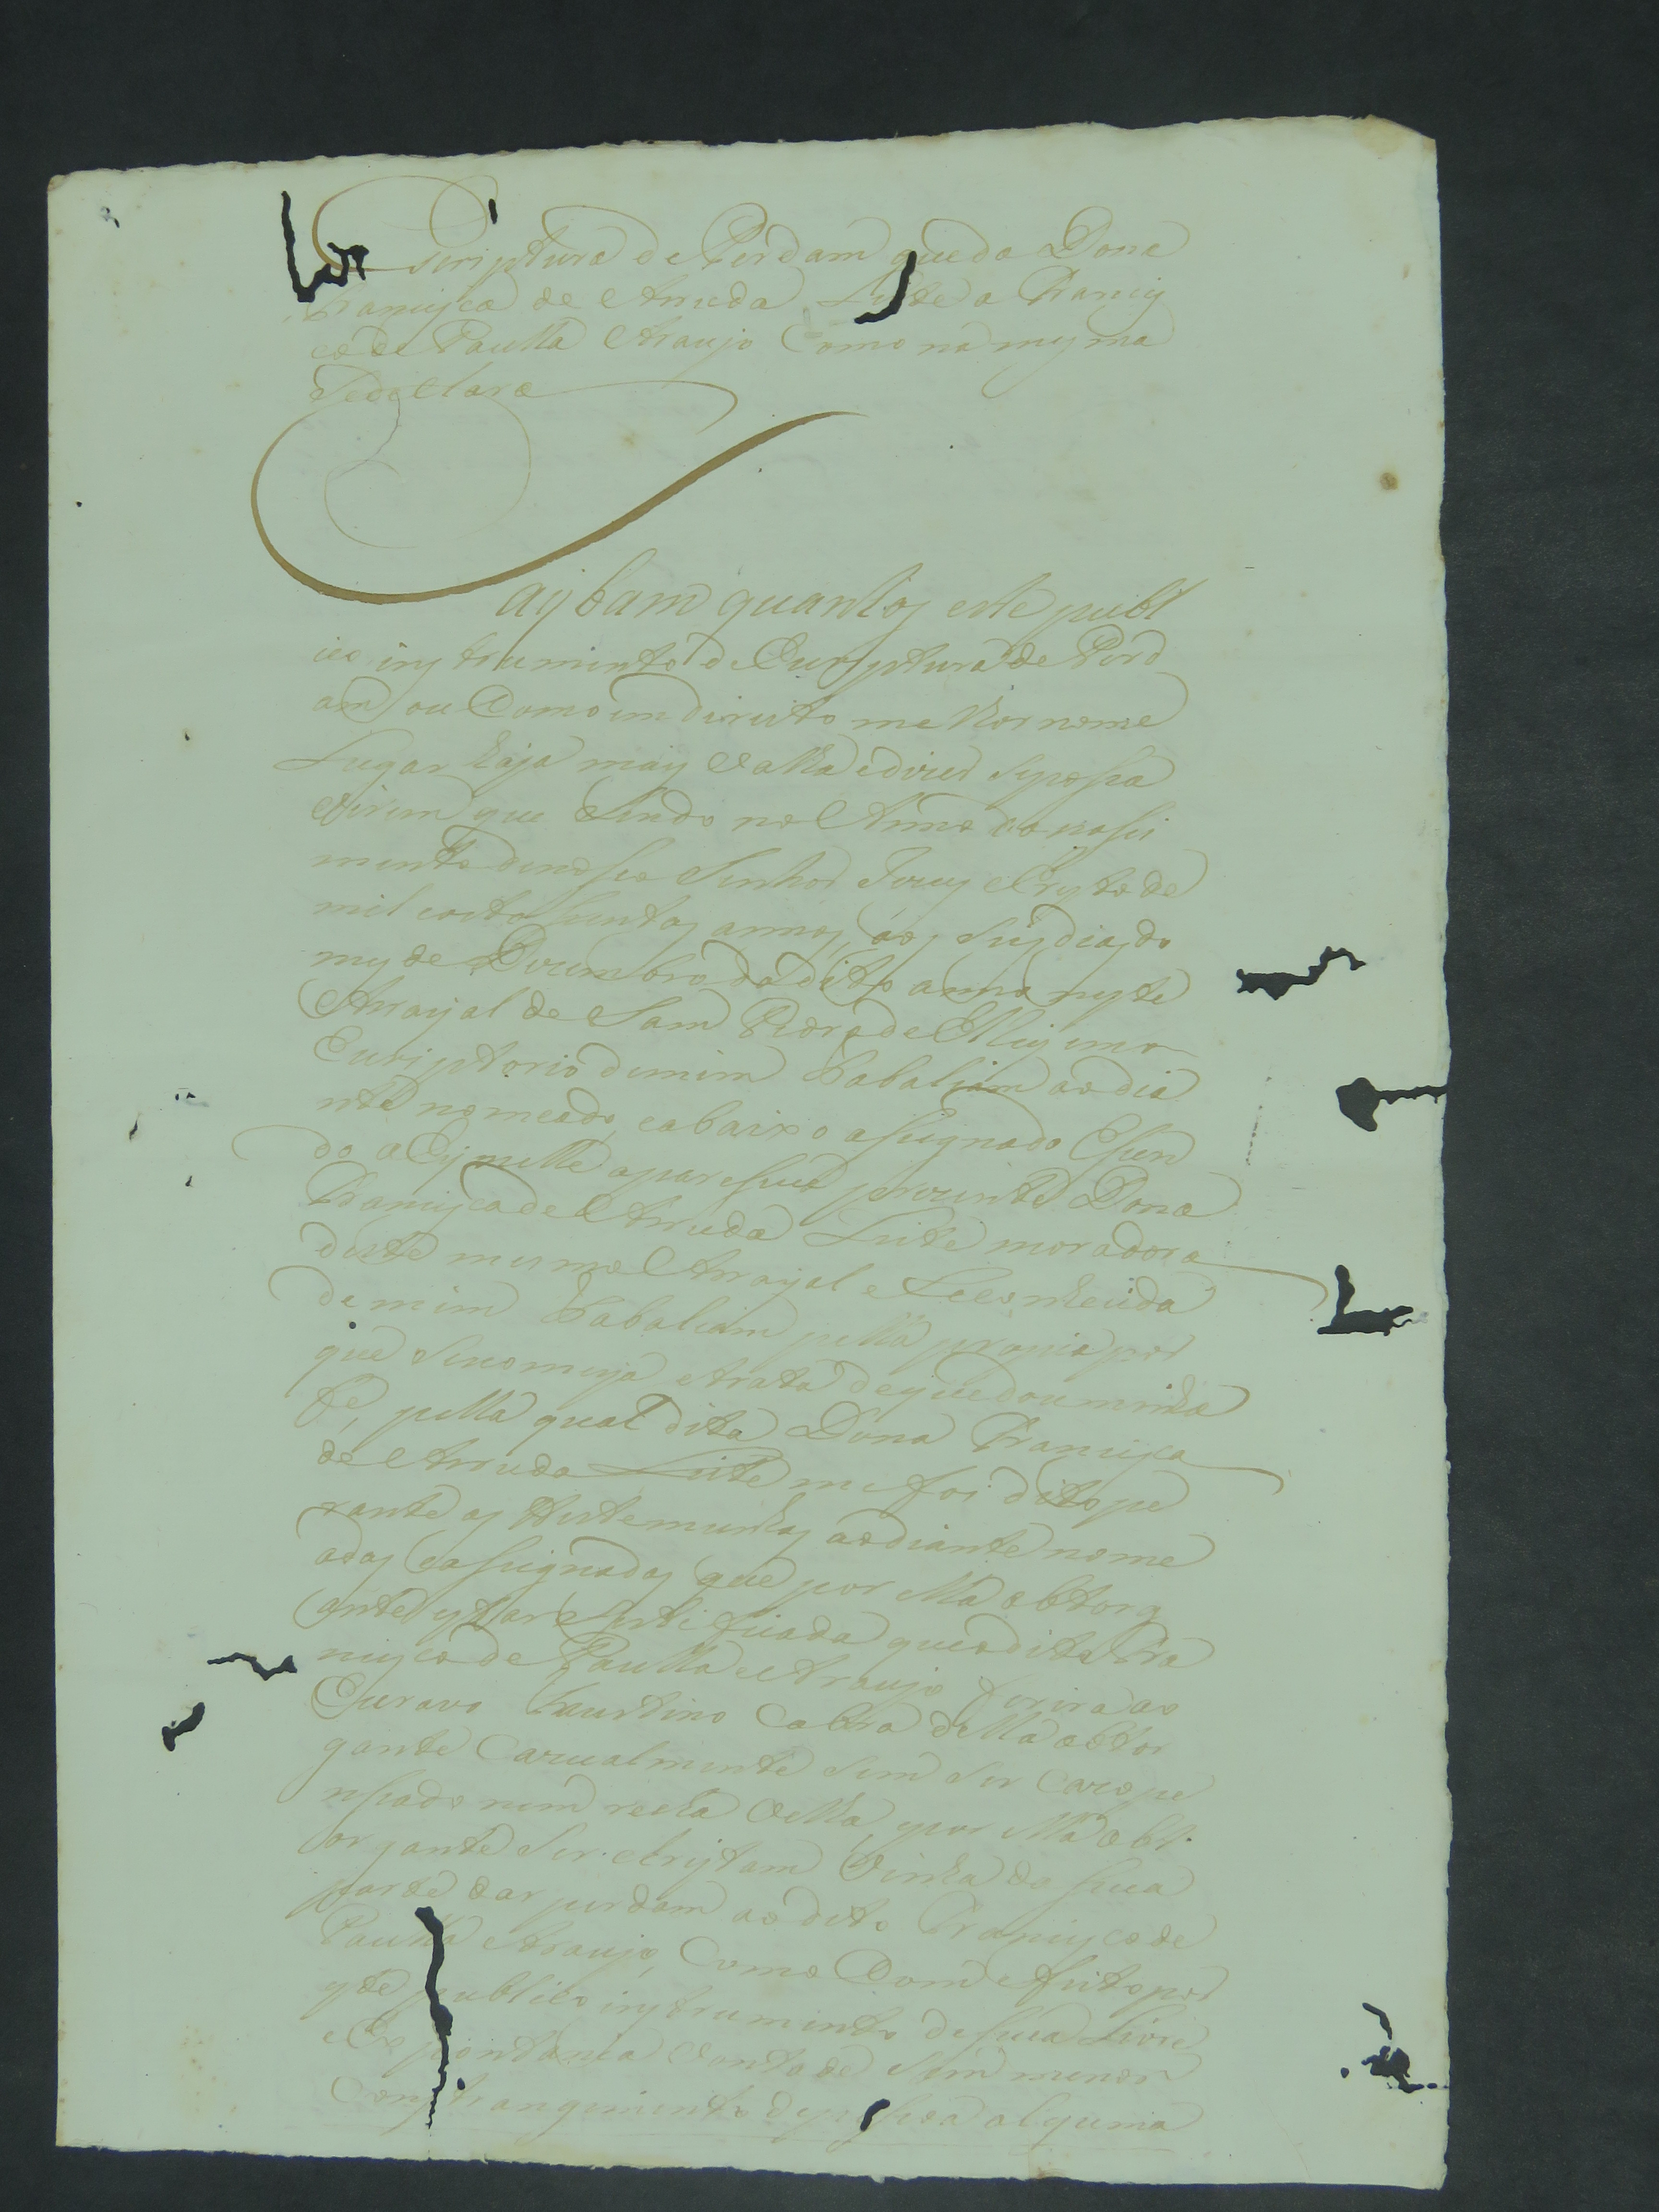 Escriptura de Perdam que da Dona
Francisca de Arruda Leite a Francis
co de Paulla Araujo Como na mesma
Sedeclara
Saybam quantos este publ
ico instrumento de Escriptura de Perd
am ou Como em direito melhor nome
Lugar haja mais valha e dizer se possa
virem que sendo no Anno do nasci
mento denosso Senhor Jezus Cristo de
mil oito sentos annos, aos seis dias do
mes de Dezembro do dito anno neste
Arrayal de Sam Pedro de El Rey em o
Escriptorio demim Tabaliam aodia
nte nomeado, eabaixo asignado Esen
do ahy nelle aparesseo prezente Dona
Francisca de Arruda Leite moradora
deste mesmo Arrayal e Reconhecida
de mim Tabaliam pella propria por
que senomeya etrata deque dou minha
fe, pella qual dita Dona Francisca
de Arruda Leite me foi dito pe
rante as testemunhas aodiante nome
adas easignadas que por ella obtorg
ante estar Sertificada que o dito Fra
ncisco de Paulla Araujo ferira ao
Escravo Faustino Cabra della obtor
gante Cazualmente sem ser Cazo pe
nsado nem rexa velha, epor ella obt
organte ser Cristam vinha da sua
parte dar perdam ao dito Francisco de
Paulla Araujo, Como Com efeito por
este publico instrumento de sua Livre
e Espontania vontade sem menor
Constrangimento depessoa alguma